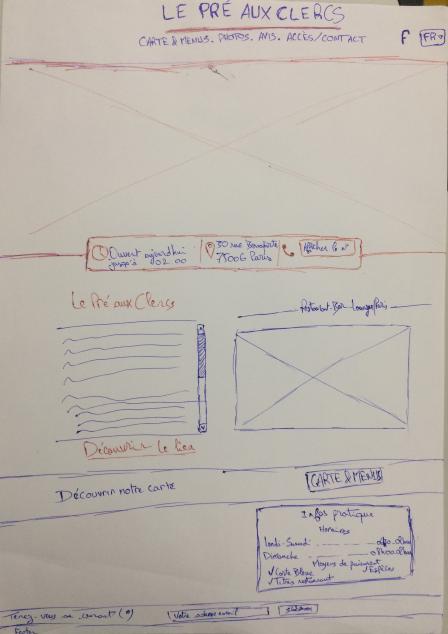 LE PRÉ AUX CLERCS
CARTE & MENUS. PHOTOS. AVIS. ACCÈS/CONTACT
F
FR
Ouvert aujourd'hui
jusqu'à 02:00
30 rue Bonaparte
75006 Paris
Afficher le n°
Le Pré aux Clercs
Restaurant-Bar Lounge Paris
Découvrir le lieu
Découvrir notre carte
CARTE & MENUS
Infos pratique
Horaires
Lundi-Samedi
Dimanche
Moyens de paiement
✓ Carte Bleue ✓ Espèces
✓ Titres restaurant
Tenez-vous au courant (*)
Votre adresse email
Footer